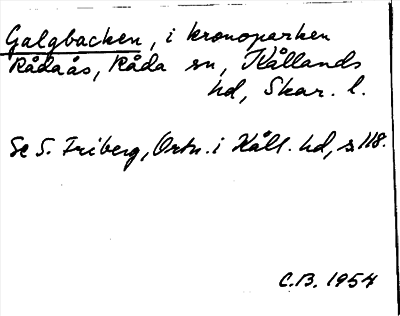 Galgbacken, i kronoparken
Rådaås, Råda sn, Kållands
hd, Skar. l.
Se S. Friberg, Ortn. i Kåll. hd, s. 118.
C.B. 1954